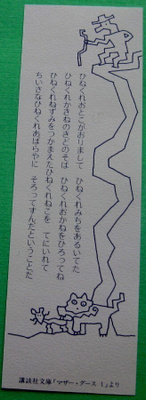 ひねくれおとこがおりまして　ひねくれみちをあるいてた
ひねくれかきねのきどのそば　ひねくれおかねをひろってね
ひねくれねずみをつかまえたひねくれねこを　てにいれて
ちいさなひねくれあばらやに　そろってすんだということだ
講談社文庫「マザー・グース 1」より